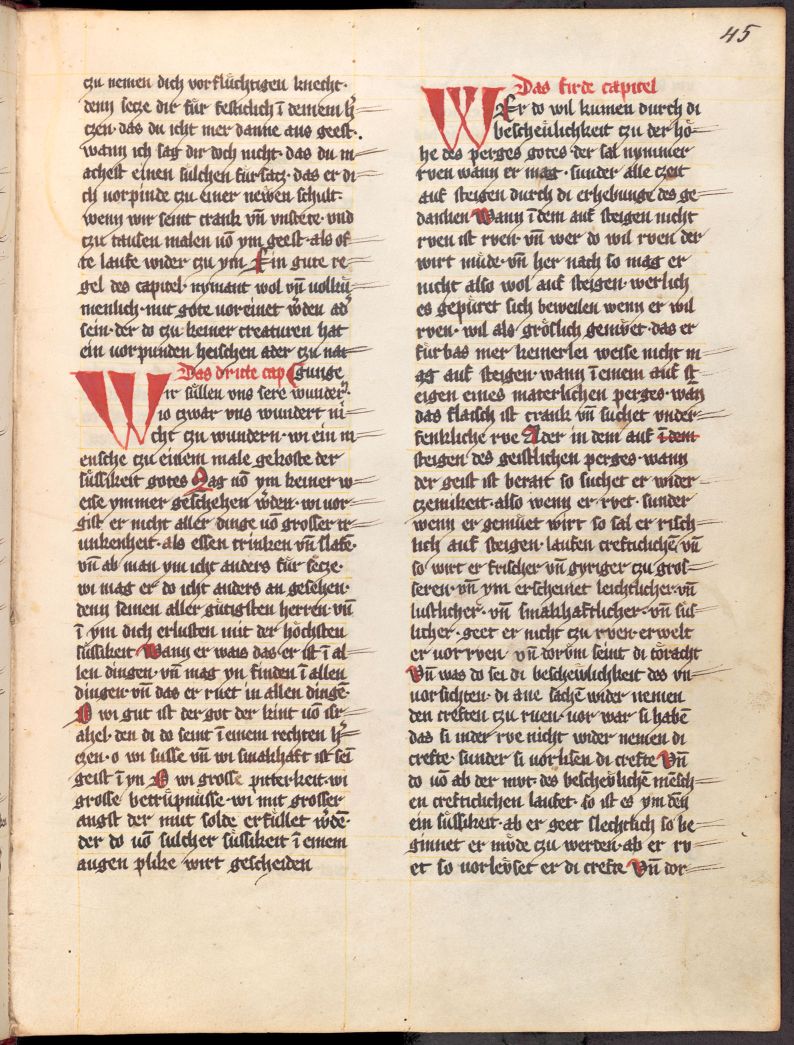 45
czu nemen dich vorfluͤchtigen knecht·
denn secze dir fuͤr festiclich ī deinem h̄
czen· das du icht mer danne aus geest·
wann ich sag dir doch nicht· das du m
achest einen sulchen fuͤrsacz· das er di
ch vorpinde czu einer newen schult·
wenn wir seint crank vn̄ vnstete· vnd
czu tausen malen uō ym geest· als of
te laufe wider czu ym Ein gute re
gel des capitel· nymant wol vn̄ volku
menlich· mit gote uoreinet w̄den ad̓
sein· der do czu keiner creaturen hat
ein uorpunden heischen ader czu nai
Das dritte cap gunge
Wir suͤllen vns sere wunder̄
io czwar vns wundert ni
cht czu wundern· wi ein m
ensche czu einem male gekoste der
suͤssikeit gotes Mag uō ym keiner w
eise ymmer geschehen w̄den· wi uor
gist er nicht aller dinge uō grosser tr
unkenheit· als essen trinken vn̄ slafē·
vn̄ ab man ym icht anders fuͤr secze·
wi mag er do icht anders an gesehen·
denn seinen aller guͤtigsten herren· vn̄
ī ym dich erlusten mit der hoͤchsten
suͤssikeit Wann er wais das er ist ī al
len dingen· vn̄ mag yn finden ī allen
dingen· vn̄ das er ruet in allen dingē·
O wi gut ist der got der kint uō isr
ahel· den di do seint ī einem rechten h̄
czen· o wi susse vn̄ wi smakhaft ist sei
geist ī yn O wi grosse pitterkeit· wi
grosse betruͤpnuͤsse· wi mit grosser
angst der mut solde erfuͤllet w̄dē·
der do uō sulcher suͤssikeit ī einem
augen plike wirt gescheiden
Das firde capitel
WEr do wil kumen durch di
bescheulichkeit czu der hoͤ
he des perges gotes· der sal nymmer
rven wann er mag· sunder alle czeit
auf steigen durch di erhebunge des ge
danken Wann ī dem auf steigen nicht
rven ist rven· vn̄ wer do wil rven der
wirt muͤde· vn̄ her nach so mag er
nicht also wol auf steigen· werlich
es gepuͤret sich beweilen wenn er wil
rven· wil als groͤslich gemuͤet· das er
fuͤrbas mer keinerlei weise nicht m
ag auf steigen· wann ī einem auf st
eigen eines materlichen perges· wan̄
das flaisch ist crank vn̄ suchet vnder
fenkliche rve Ader in dem auf ī dem
steigen des geistlichen perges· wann
der geist ist berait so suchet er wider
czemikeit· also wenn er rvet· sunder
wenn er gemuͤet wirt so sal er risch
lich auf steigen· laufen crefticlichē vn̄
so wirt er frischer vn̄ gyriger czu gros
seren· vn̄ ym erscheinet leichtlicher· vn̄
lustlicher· vn̄ smakhaftlicher· vn̄ suͤs
licher· geet er nicht czu rven· er welt
er uor rven· vn̄ dorvm seint di toͤracht
Vn̄ was do sei di bescheulichkeit des vn
uorsichten· di aue sachē wider nemen
den creften czu ruen· uor war si habē
das si inder rve nicht wider nemen di
crefte· sunder si uorlisen di crefte Vn̄
do uō ab der mvt· des bescheulichē mēsch
en crefticlichen laufet· so ist es ym dēn
ein suͤssikeit· ab er geet slechtlich so be
ginnet er muͤde czu werden· ab er rv
et so uorleuset er di crefte Vn̄ dor